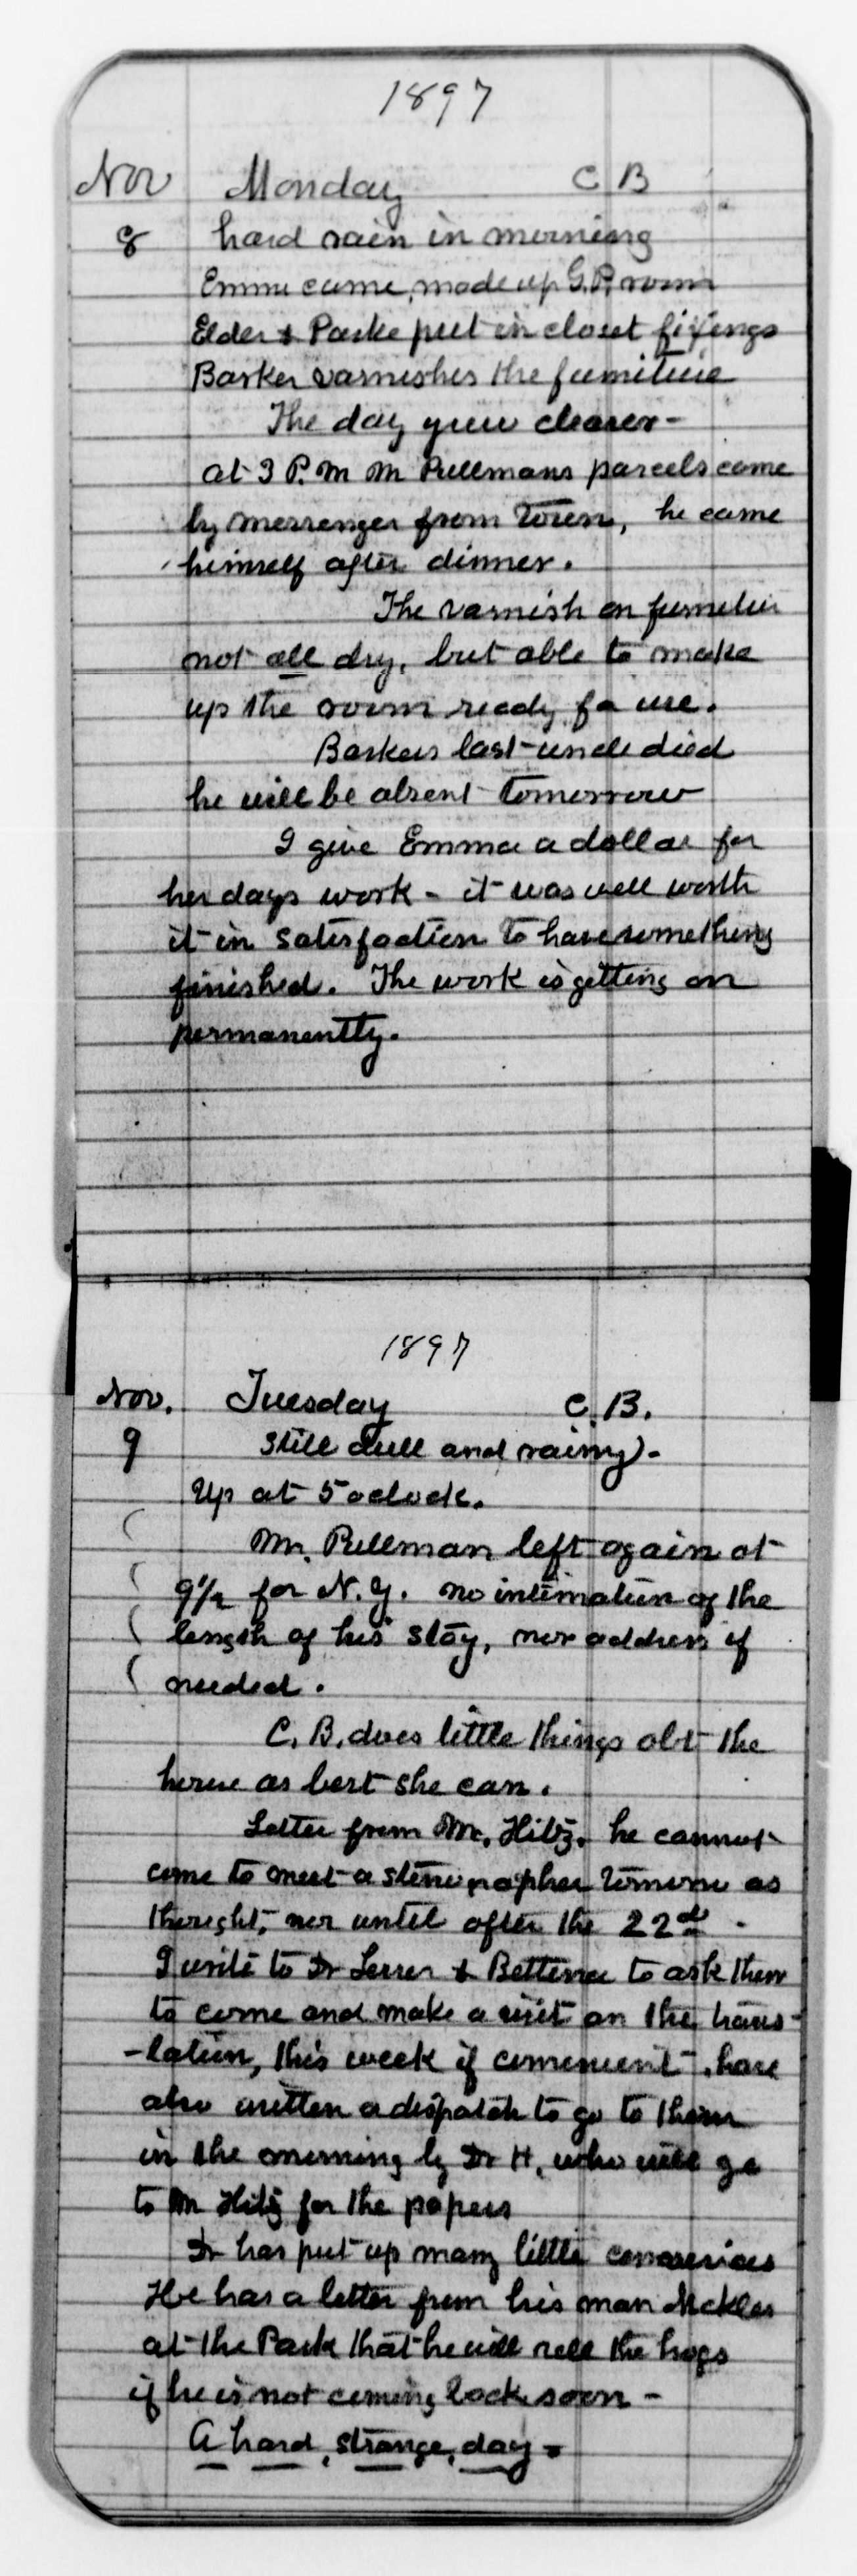 1897
Nov Monday C B
8 hard rain in morning
Emma came, made up G.P. room
Elder & Parke put in closet fixings
Barker varnishes the furniture
The day grew clearer -
at 3 P.M M Pullmans parcels come
by messenger from town, he came
himself after dinner.
The varnish on furniture
not all dry, but able to make
up the room ready for use.
Barkers last uncle died
he will be absent tomorrow
I give Emma a dollar for
her days work - it was well worth
it in satisfaction to have something
finished. The work is getting on
permanently.
1897
Nov. Tuesday C.B.
9 Still dull and rainy -
Up at 5 oclock.
Mr. Pullman left again at
9 1/2 for N.Y. no intimation of the
length of his stay, nor address if
needed.
C.B. does little things abt the
house as best she can.
Letter from Mr. Hitz. he cannot
come to meet a stenographer tomorrow as
thought, nor until after the 22d -
I write to Dr Lesser & Bettena to ask them
to come and make a visit on the trans-
-lation, this week if convenient, have
also written a dispatch to go to them
in the morning by Dr H. who will go
to Mr Hitz for the papers
Dr has put up many little conveniences
He has a letter from his man
at the Park that he will sell the hogs
if he is not coming back soon -
A hard, strange, day -